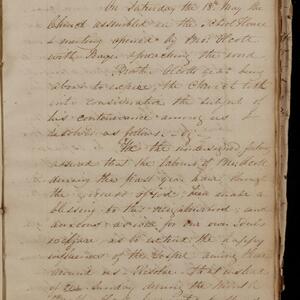 On Saturday the 18th May the
Church assembled in the School House
a meeting opened by Bro. Alcott
with Prayer approaching the word
Brother Alcotts year being
about to expire, the Church took
into consideration the subject of
his continuance among us &
resolved as follows. Viz.
We the undersigned feeling
assured that the labours of Br. Alcott
during the past year have, through
the goodness of God, been made a
blessing to this neighbourhood, and
anxious as well for our own Souls
welfare as to extend the happy
influences of the Gospel among those
around us. Resolve. That instead
of one Sunday during the Month